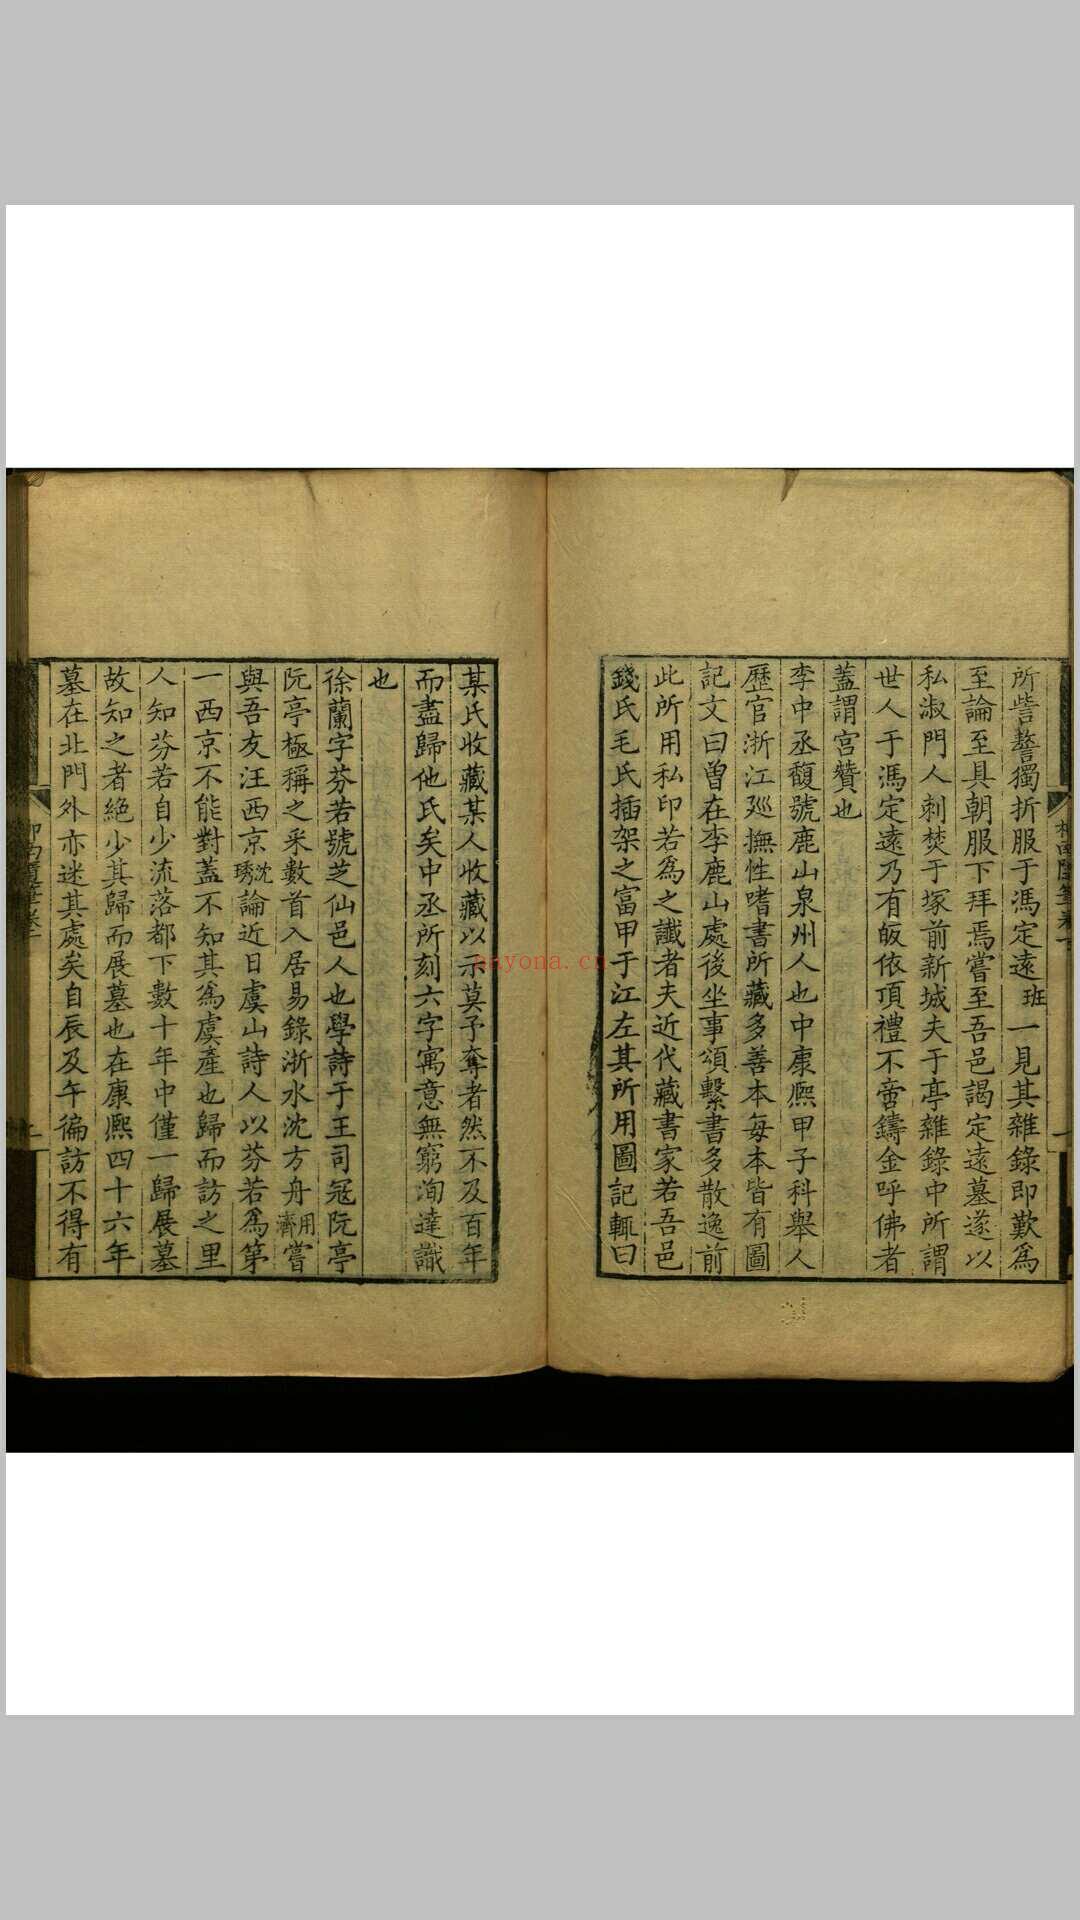 所訾謷獨折服于馮定遠班一見其雜錄即歎爲
至論至具朝服下拜焉嘗至吾邑謁定遠墓遂以
私淑門人刺焚于塚前新城夫于亭雜錄中所謂
世人于馮定遠乃有皈依頂禮不啻鑄金呼佛者
蓋謂宮贊也
李中丞馥號鹿山泉州人也中康熙甲子科舉人
歷官浙江廵撫性嗜書所藏多善本每本皆有圖
記文曰曾在李鹿山處後坐事頌繫書多散逸前
此所用私印若爲之讖者夫近代藏書家若吾邑
錢氏毛氏插架之富甲于江左其所用圖記輒曰
某氏收藏某人收藏以示莫予奪者然不及百年
而盡歸他氏矣中丞所刻六字寓意無窮洵達識
也
徐蘭字芬若號芝仙邑人也學詩于王司冦阮亭
阮亭極稱之采數首入居易錄浙水沈方舟用濟嘗
與吾友汪西京沈琇論近日虞山詩人以芬若爲第
一西京不能對蓋不知其爲虞產也歸而訪之里
人知芬若自少流落都下數十年中僅一歸展墓
故知之者絶少其歸而展墓也在康熙四十六年
墓在北門外亦迷其處矣自辰及午徧訪不得有
anyona.cn